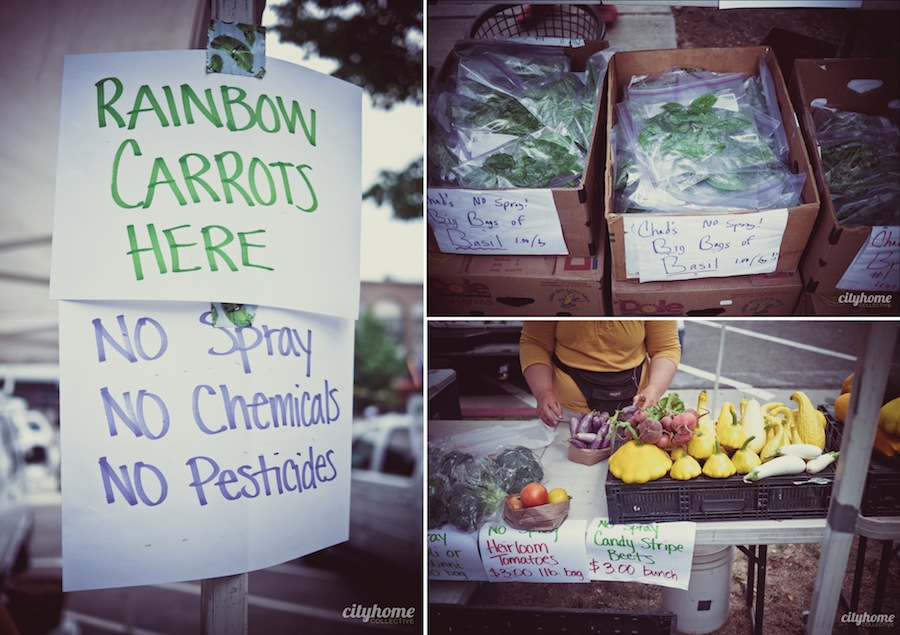 RAINBOW
CARROTS
HERE
No Spray
No Chemicals
No Pesticides
cityhome
COLLECTIVE
Chad's No Spray!
Big Bags of
Basil 1.00/b
Chad's No Spray!
Big Bags of
Basil 1.00/b!!
Chad's
Big
Basil
Dole
Dole
cityhome
COLLECTIVE
No Spray
Heirloom
Tomatoes
$3.00 lb bag
No Spray
Candy Stripe
Beets
$3.00 bunch
cityhome
COLLECTIVE